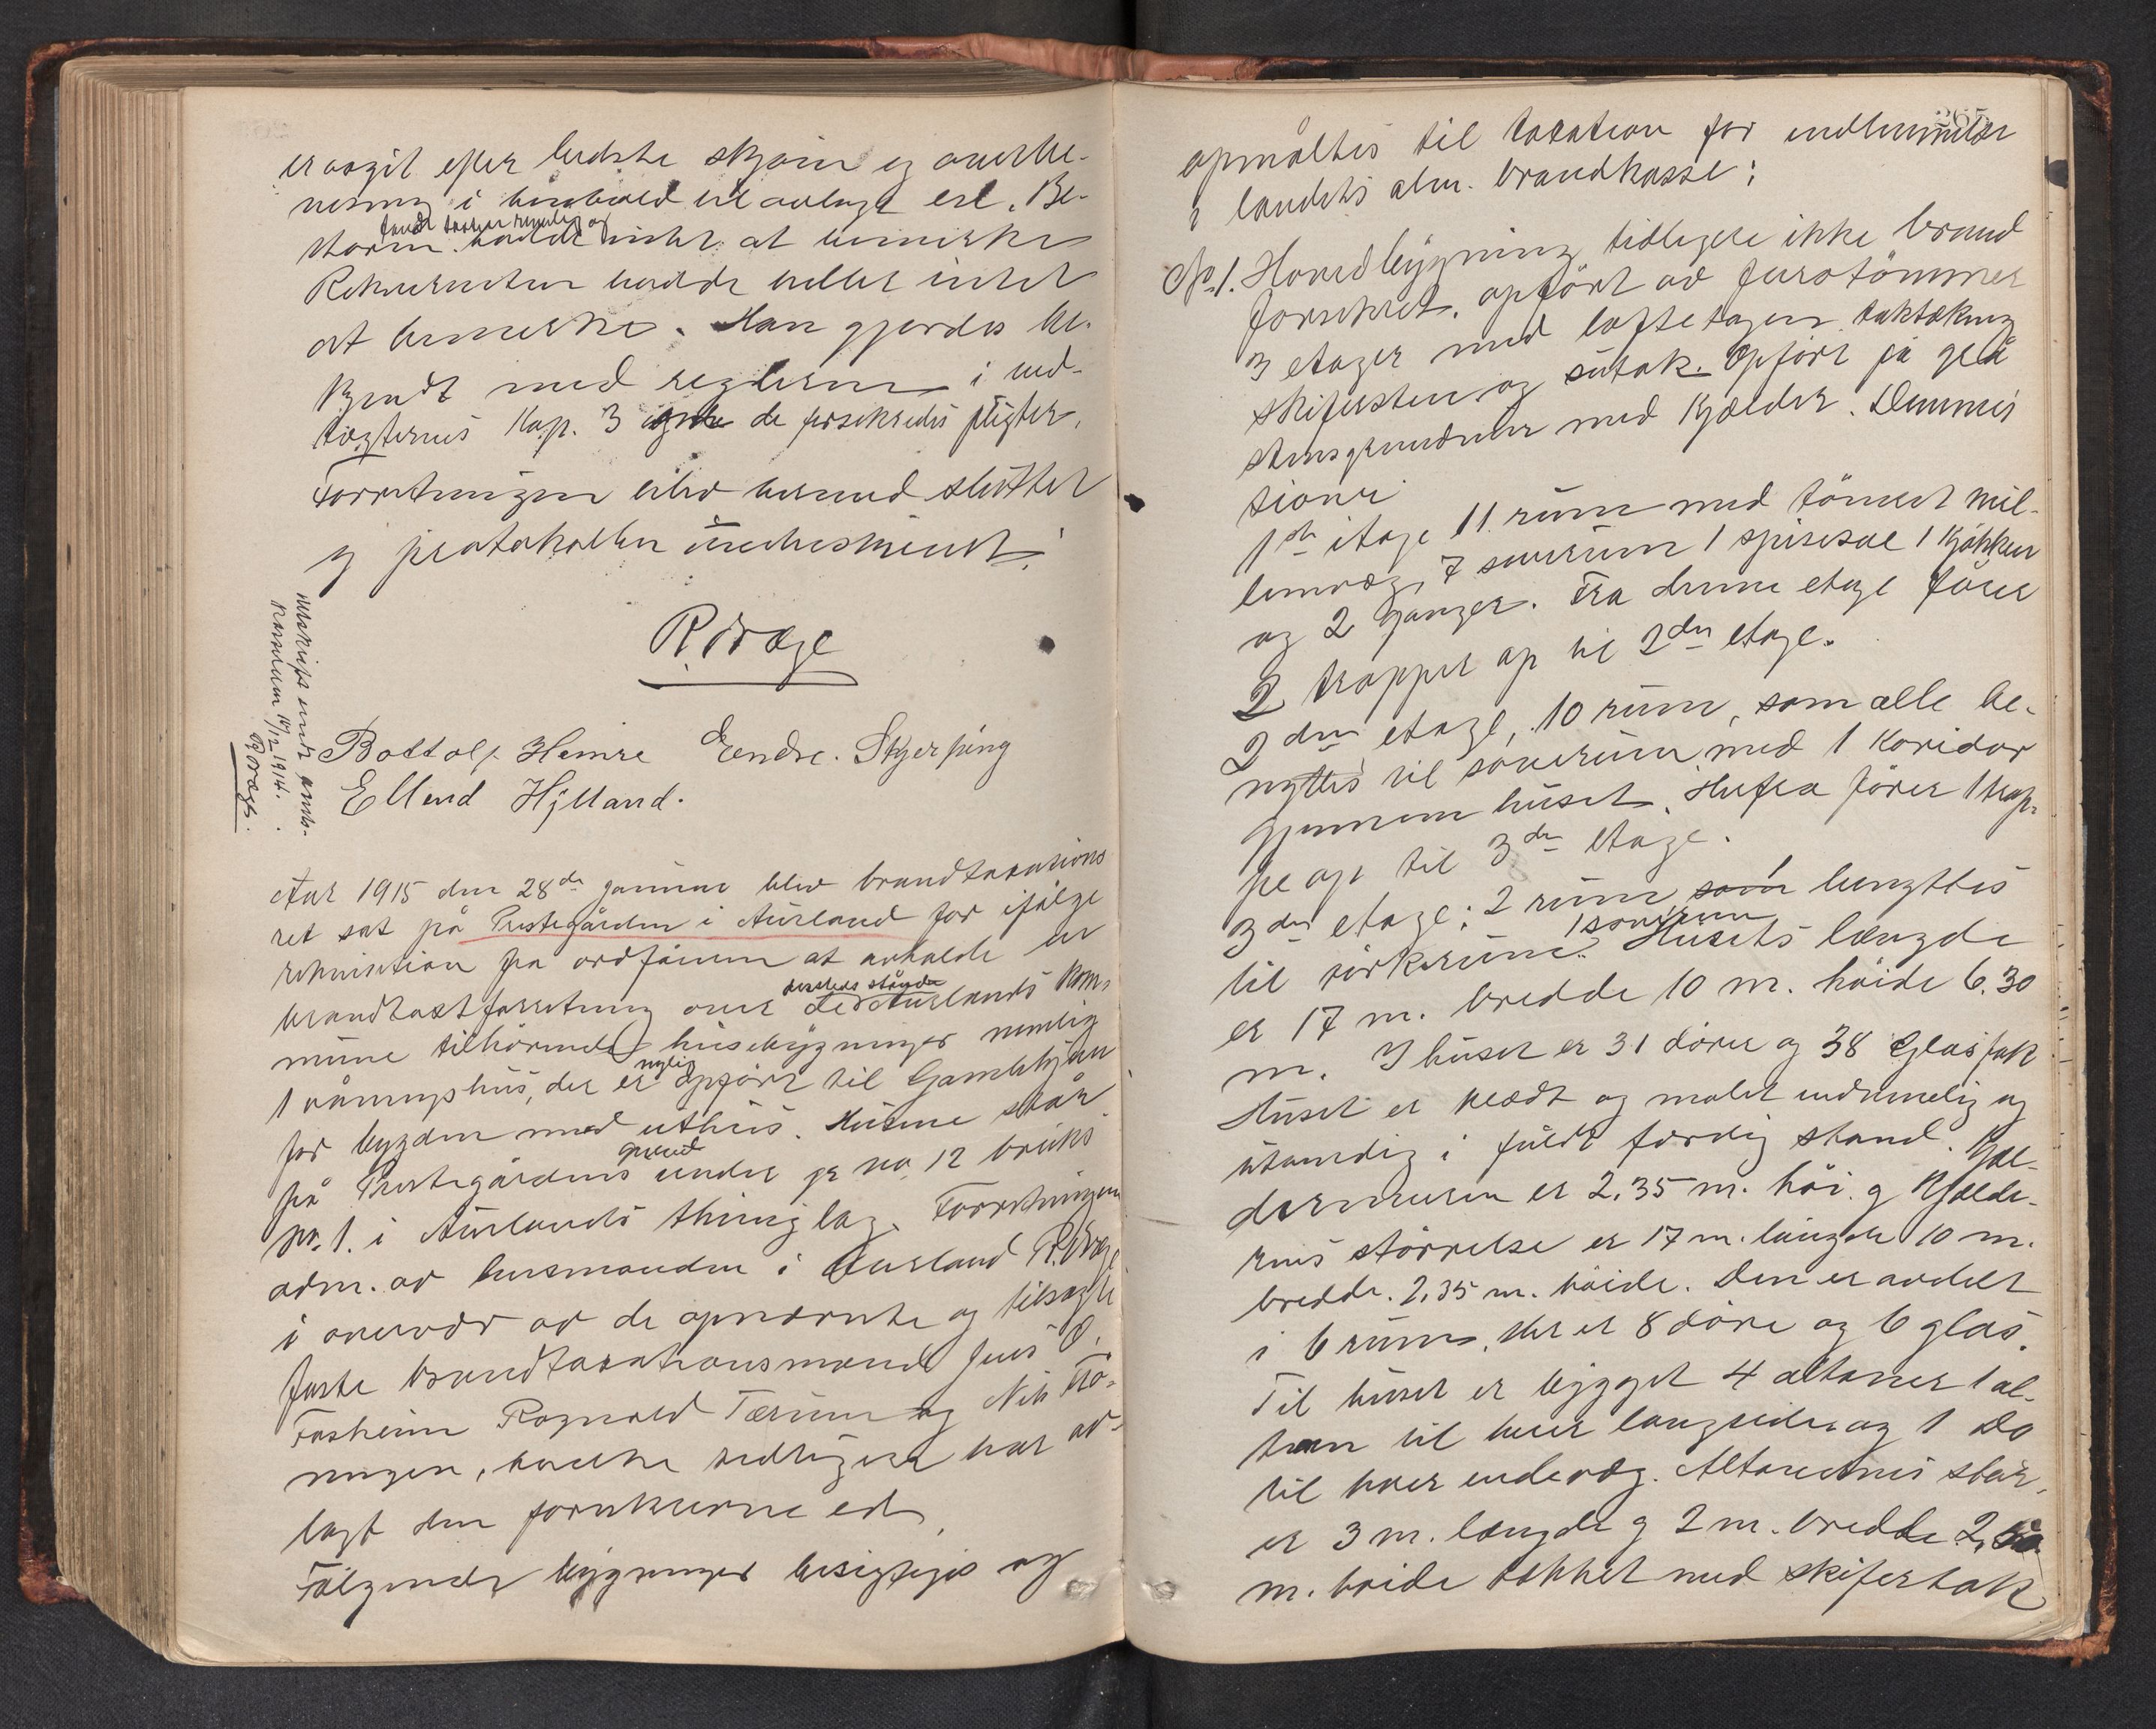 er avgit efter bedste skjøn og overbe-
visning i henhold til avlagt ed. Be-
styreren fandt taxten rimelig og hadde intet at bemerke
Rekvirenten hadde heller intet
at bemerke. Han gjordes be-
kjendt med reglerne i ved-
tægternes Kap. 3 de forsikredes pligter.
Forretningen blev hermed sluttet
og protokollen underskrevet.
R. Dræge
Bottolf Hemre Endre. Skjerping
Ellend Hylland.
Utskrift sendt amts-
kasseren 16/12 1914.
R. Dræge.
Aar 1915 den 28de januar blev brandtaxations
ret sat på Prestegården i Aurland for ifølge
rekvisition fra ordføreren at avholde en
brandtaxtforretning over Aurlands kom-
mune tilhørende husebygninger nemlig
1 våningshus, der er nylig opført til Gamlehjem
for bygden med uthus. Husene står
på Prestegårdens grund under gr no 12 bruks
no. 1. i Aurlands thinglag. Forretningen
adm. av lensmanden i Aurland R. Dræge
i overvær av de opnævnte og tilsagte
faste brandtaxationsmænd Jens O.
Fosheim Ragnvald Tærum og Nils
, hvilke tidligere har av-
lagt den fornødne ed.
Følgende bygninger besigtiges og
265
opmåltes til taxation for indlemmelse
i landets alm. brandkasse:
No. 1. Hovedbygning tidligere ikke brand
forsikret. opført av furotømmer
3 etager med loftetagen taktækning
skifersten og sutak. Opført på grå
stensgrundmur med Kjælder. Dimmen
sioner
1ste etage 11 rum med tømret mel-
lemvæg, 7 soverum 1 spisesal 1 kjøkken
og 2 ganger. Fra denne etage fører
2 trapper op til 2den etage.
2den etage, 10 rum, som alle be-
nyttes til soverum med 1 Koridor
gjennem huset. Herfra fører 1 trap-
pe op til 3de etage.
3de etage: 2 rum som benyttes
til 1 soverum. Husets længde
er 17 m. bredde 10 m. høide 6.30
m. I huset er 31 døre og 38 Glasfak
Huset er klædt og malet indvendig og
utvendig i fuldt færdig stand. Kjæl-
dermuren er 2.35 m. høi. og Kjælde-
rens størrelse er 17 m. længde 10 m.
bredde. 2.35 m. høide. Den er avdelt
i 6 rum, der er 8 døre og 6 glas.
Til huset er bygget 4 altaner 1 al-
tan til hver langside og 1 do
til hver endevæg. Altanernes stør.
er 3 m. længde og 2 m. bredde 2,
m. høide tækket med skifertak